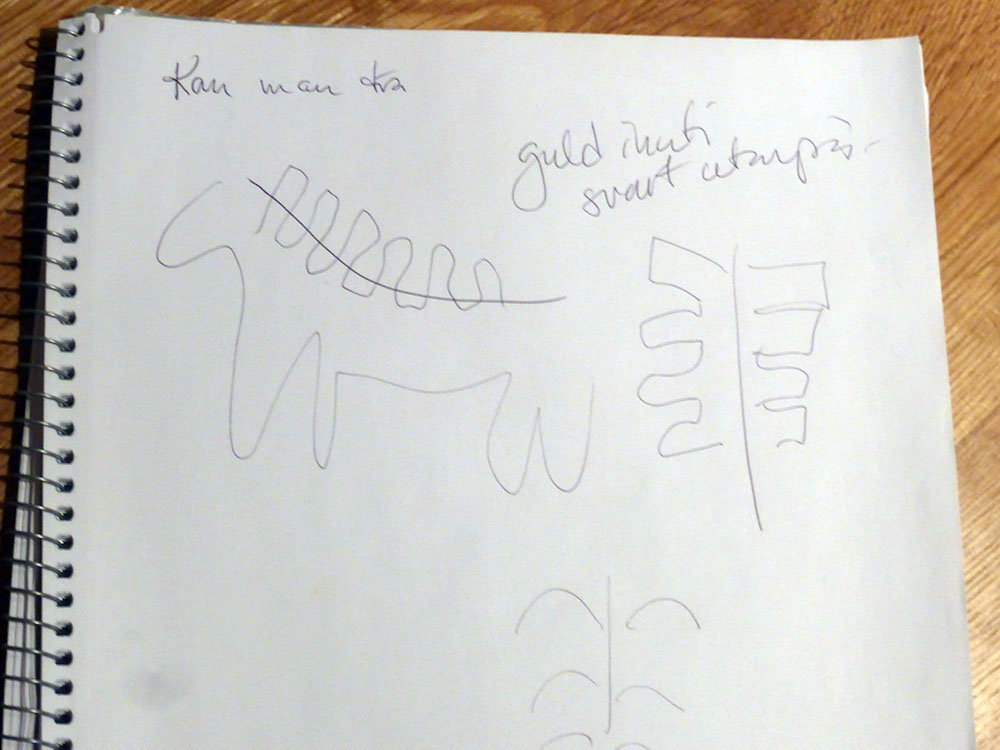 Kan man
guld inuti
svart utanpå